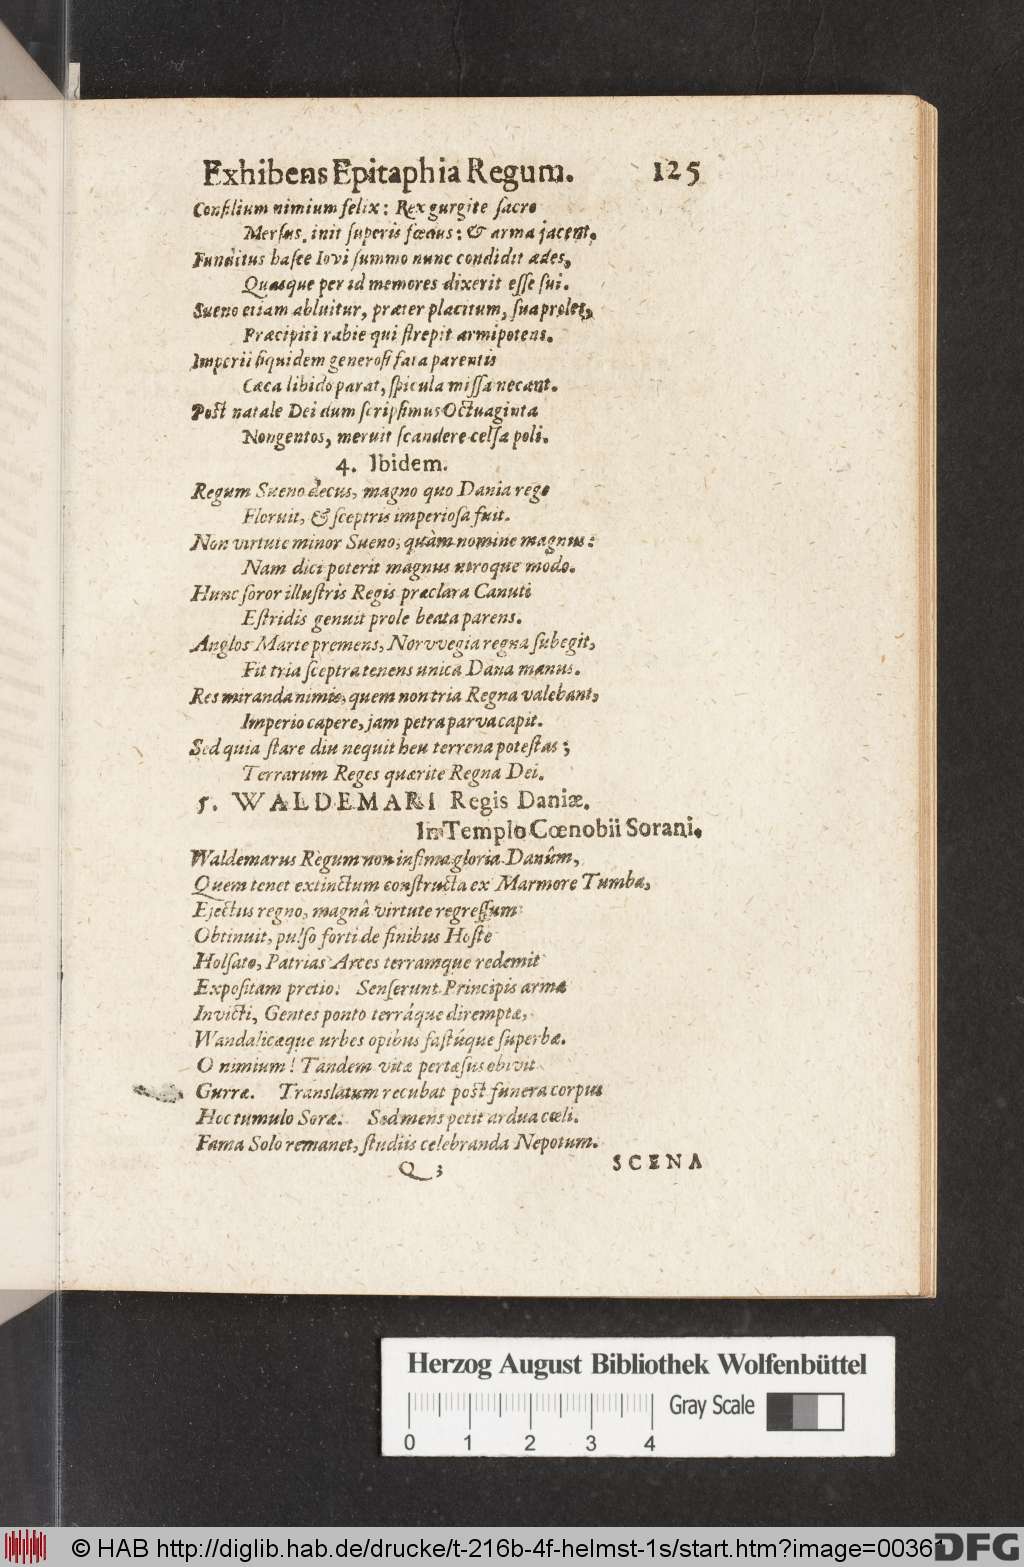 Exhibens Epitaphia Regum. 125
Consilium nimium felix: Rex gurgite sacro
Mersus, init superis fœdus: & arma jacent.
Funditus hasce Iovi summo nunc condidit ædes,
Quasque per id memores dixerit esse sui.
Sueno etiam abluitur, præter placitum, sua proles,
Præcipiti rabie qui strepit armipotens.
Imperii siquidem generosi fata parentis
Cæca libido parat, spicula missa necant.
Post natale Dei dum scripsimus Octuaginta
Nongentos, meruit scandere celsa poli.
4. Ibidem.
Regum Sueno decus, magno quo Dania rege
Floruit, & sceptris imperiosa fuit.
Non virtute minor Sueno, quàm nomine magnus:
Nam dici poterit magnus utroque modo.
Hunc soror illustris Regis præclara Canuti
Estridis genuit prole beata parens.
Anglos Marte premens, Norvvegia regna subegit,
Fit tria sceptra tenens unica Dana manus.
Res miranda nimis, quem non tria Regna valebant,
Imperio capere, jam petra parva capit.
Sed quia stare diu nequit heu terrena potestas;
Terrarum Reges quærite Regna Dei.
5. WALDEMARI Regis Daniæ.
In Templo Cœnobii Sorani.
Waldemarus Regum non infima gloria Danûm,
Quem tenet extinctum constructa ex Marmore Tumba,
Ejectus regno, magnâ virtute regressum
Obtinuit, pulso forti de finibus Hoste
Holsato, Patrias Arces terramque redemit
Expositam pretio: Senserunt Principis arma
Invicti, Gentes ponto terráque diremptæ,
Wandalicæque urbes opibus fastúque superbæ.
O nimium! Tandem vitæ pertæsus obivit
Gurræ. Translatum recubat post funera corpus
Hoc tumulo Soræ. Sed mens petit ardua cœli.
Fama Solo remanet, studiis celebranda Nepotum.
Q 3 SCENA
Herzog August Bibliothek Wolfenbüttel
Gray Scale
0 1 2 3 4
© HAB http://diglib.hab.de/drucke/t-216b-4f-helmst-1s/start.htm?image=00361
DFG